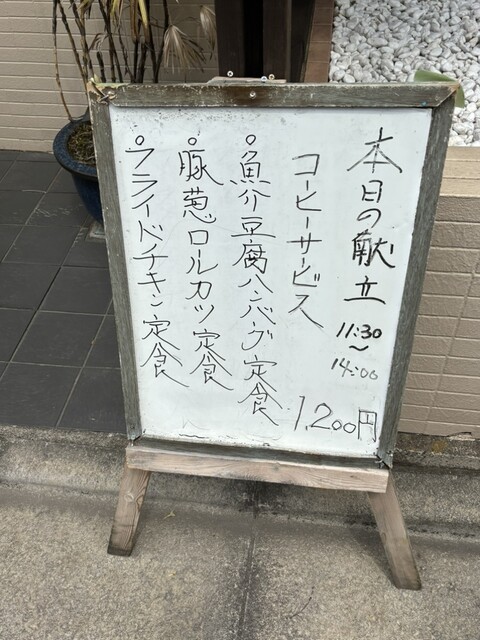 本日の献立
11:30
〜
14:00
コーヒーサービス
。魚介豆腐ハンバーグ定食
。豚葱ロールカツ定食
。フライドチキン定食
1,200円